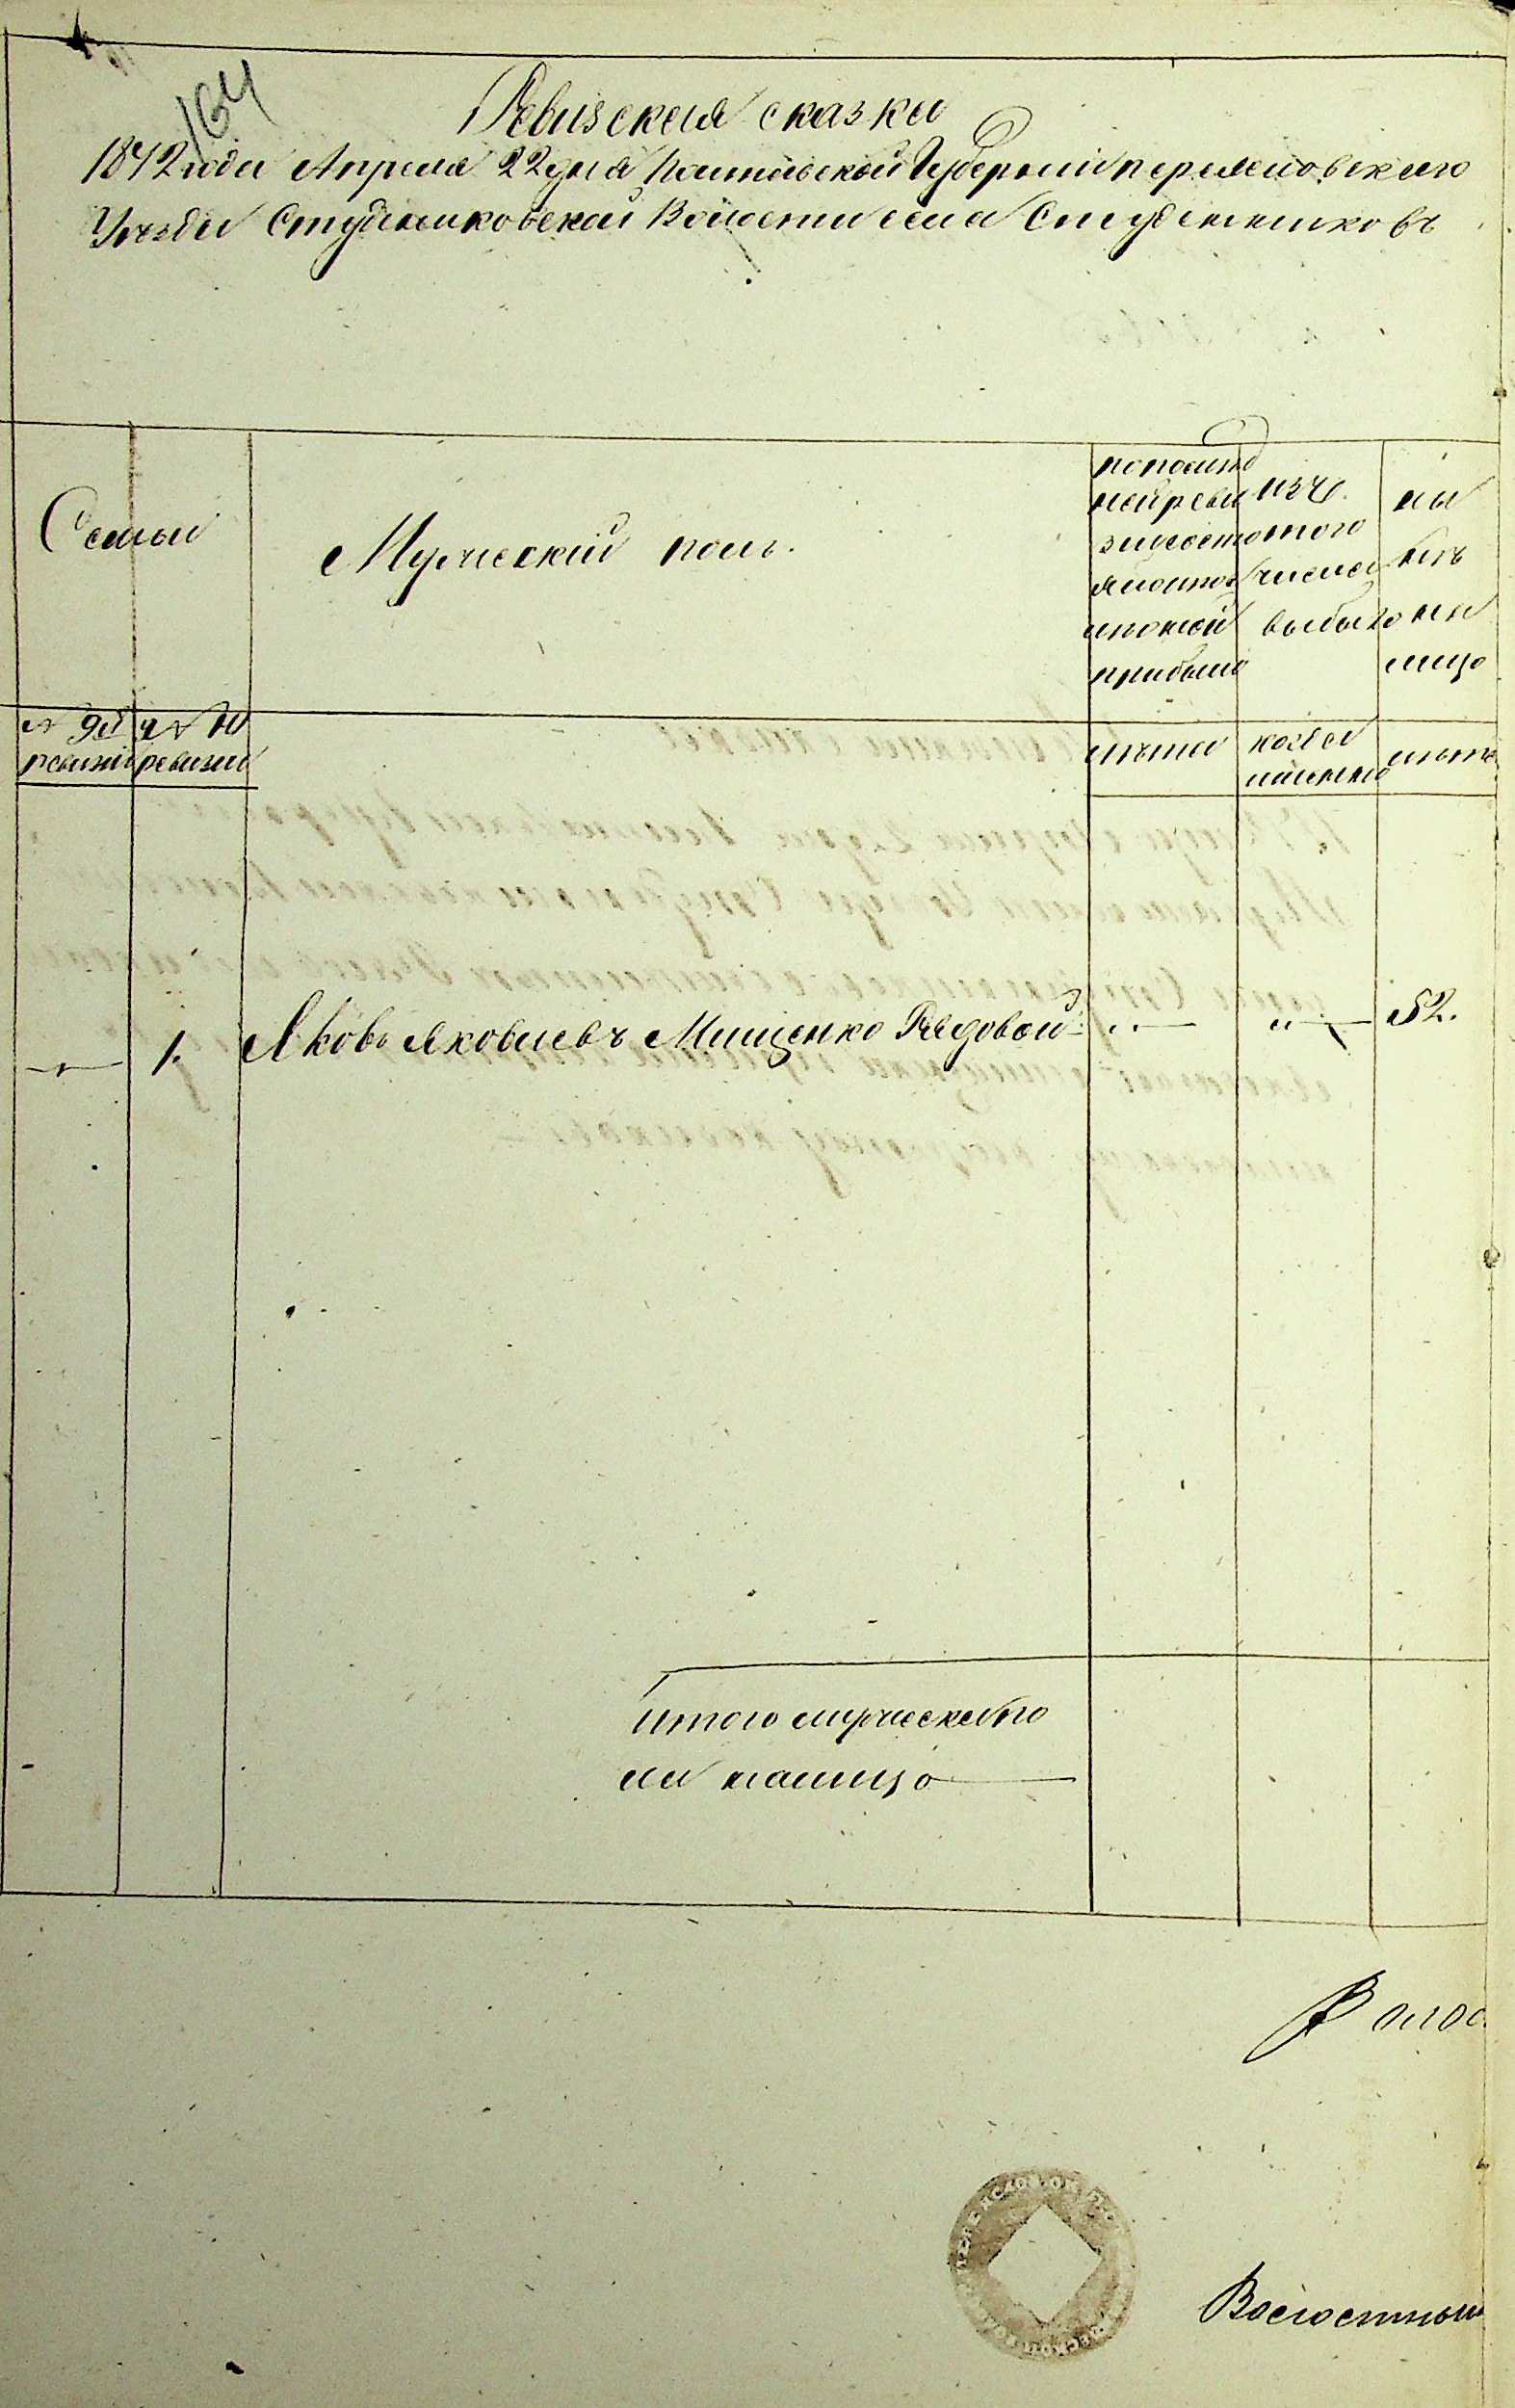 164
Ревизская сказка
1872 года Апреля 22 дня Полтавской Губерніи переяславского
Уезда Студениковской Волости села Студениковъ
Семьи
Мужескій полъ.
по послед
ней реви
зіи состо
яло и после
оной
прибыло
изъ
того
числа
выбыло
ны
нѣ
на
лицо
№ 9й
ревизіи
№ 10
ревизіи
лѣта
когда
именно
лѣта
1. Яковъ Яковлевъ Мищенко Рядовой " — " — 52.
Итого мужеска по
ла налицо
Волос
Волостный